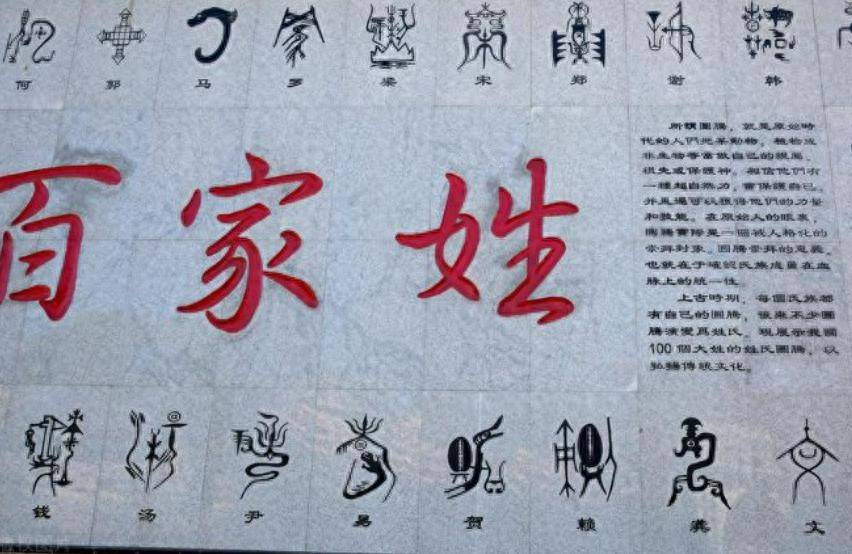 何 郭 马 罗 梁 宋 郑 谢 韩
百家姓
所謂圖騰，就是原始時
代的人們把某動物，植物或
非生物等當做自己的親屬、
祖先或保護神。相信他們有
一種超自然力，會保護自己，
并且還可以獲得他們的力量
和技能。在原始人的眼裏，
圖騰實際是一個被人格化的
崇拜對象。圖騰崇拜的意義，
也就在于確認氏族成員在血
脉上的統一性。
上古時期，每個氏族都
有自己的圖騰，後來不少圖
騰演變爲姓氏。現展示我國
100個大姓的姓氏圖騰，以
弘揚傳統文化。
钱 汤 尹 易 贺 赖 龚 文